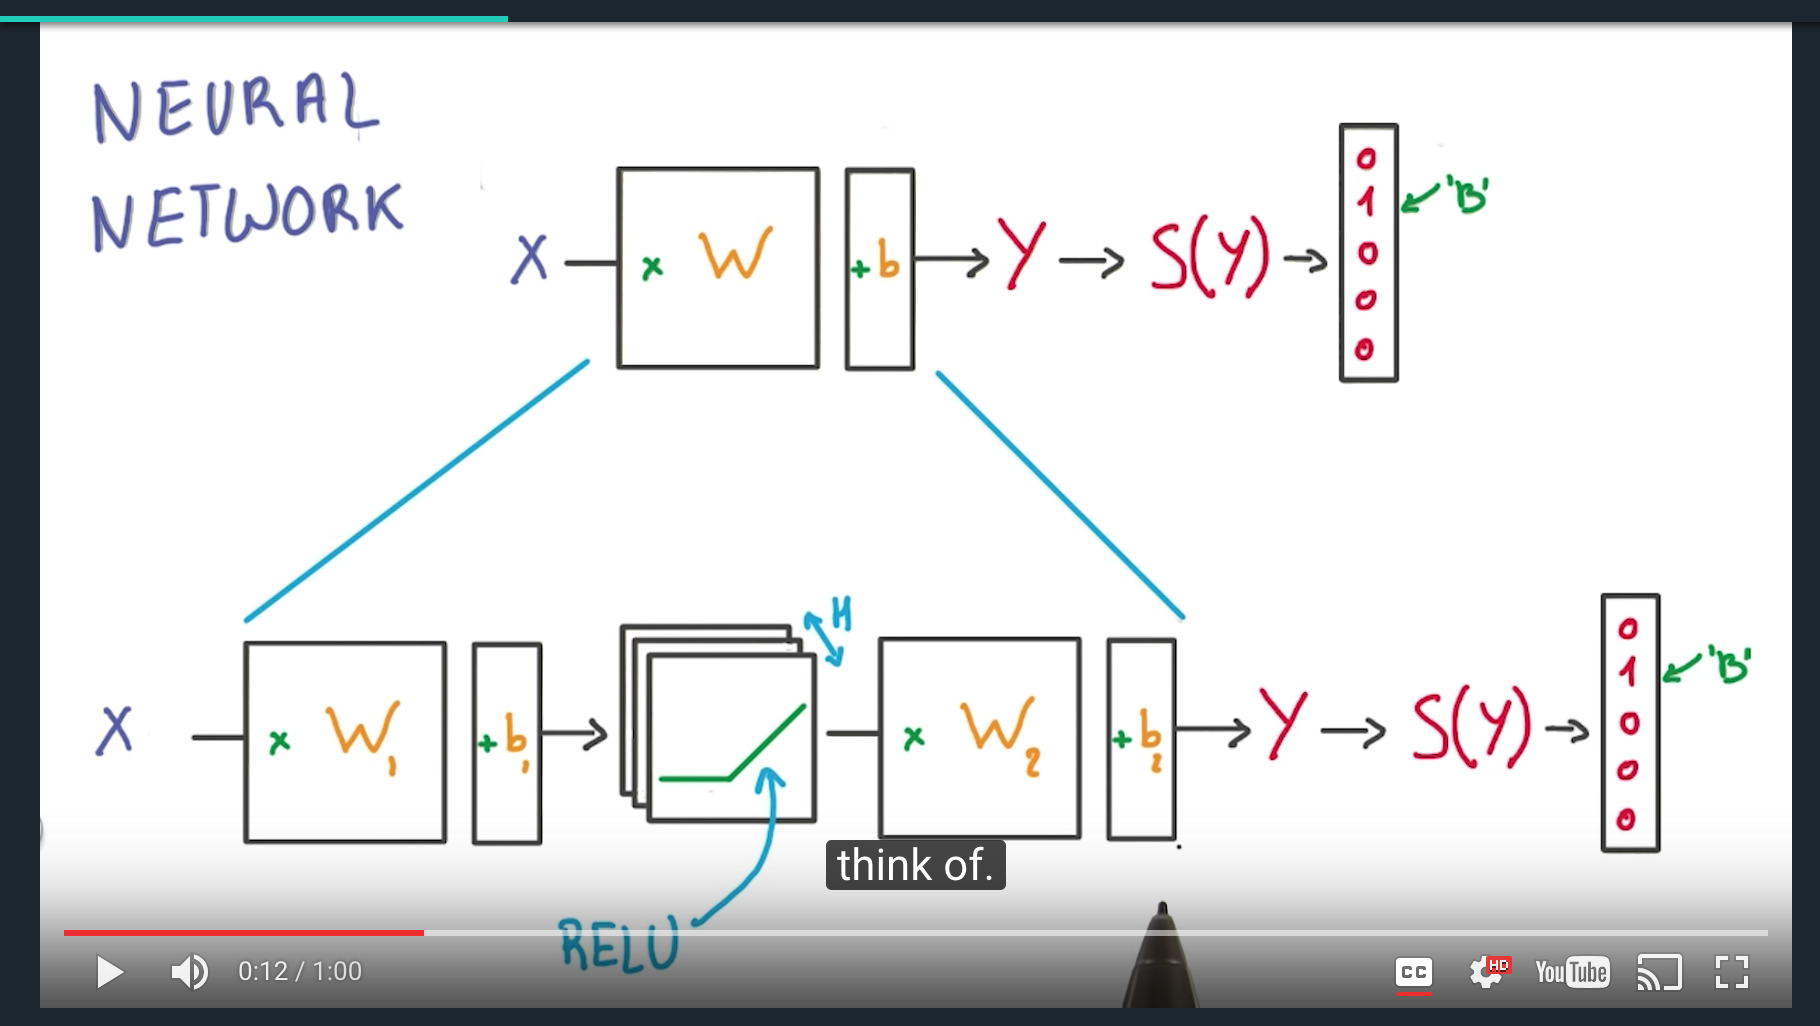 NEURAL
NETWORK
X x W + b Y S(Y)
0
1 'B'
0
0
0
H
X x W1 + b1 x W2 + b2 Y S(Y)
0
1 'B'
0
0
0
RELU
think of.
0:12 / 1:00
CC HD YouTube